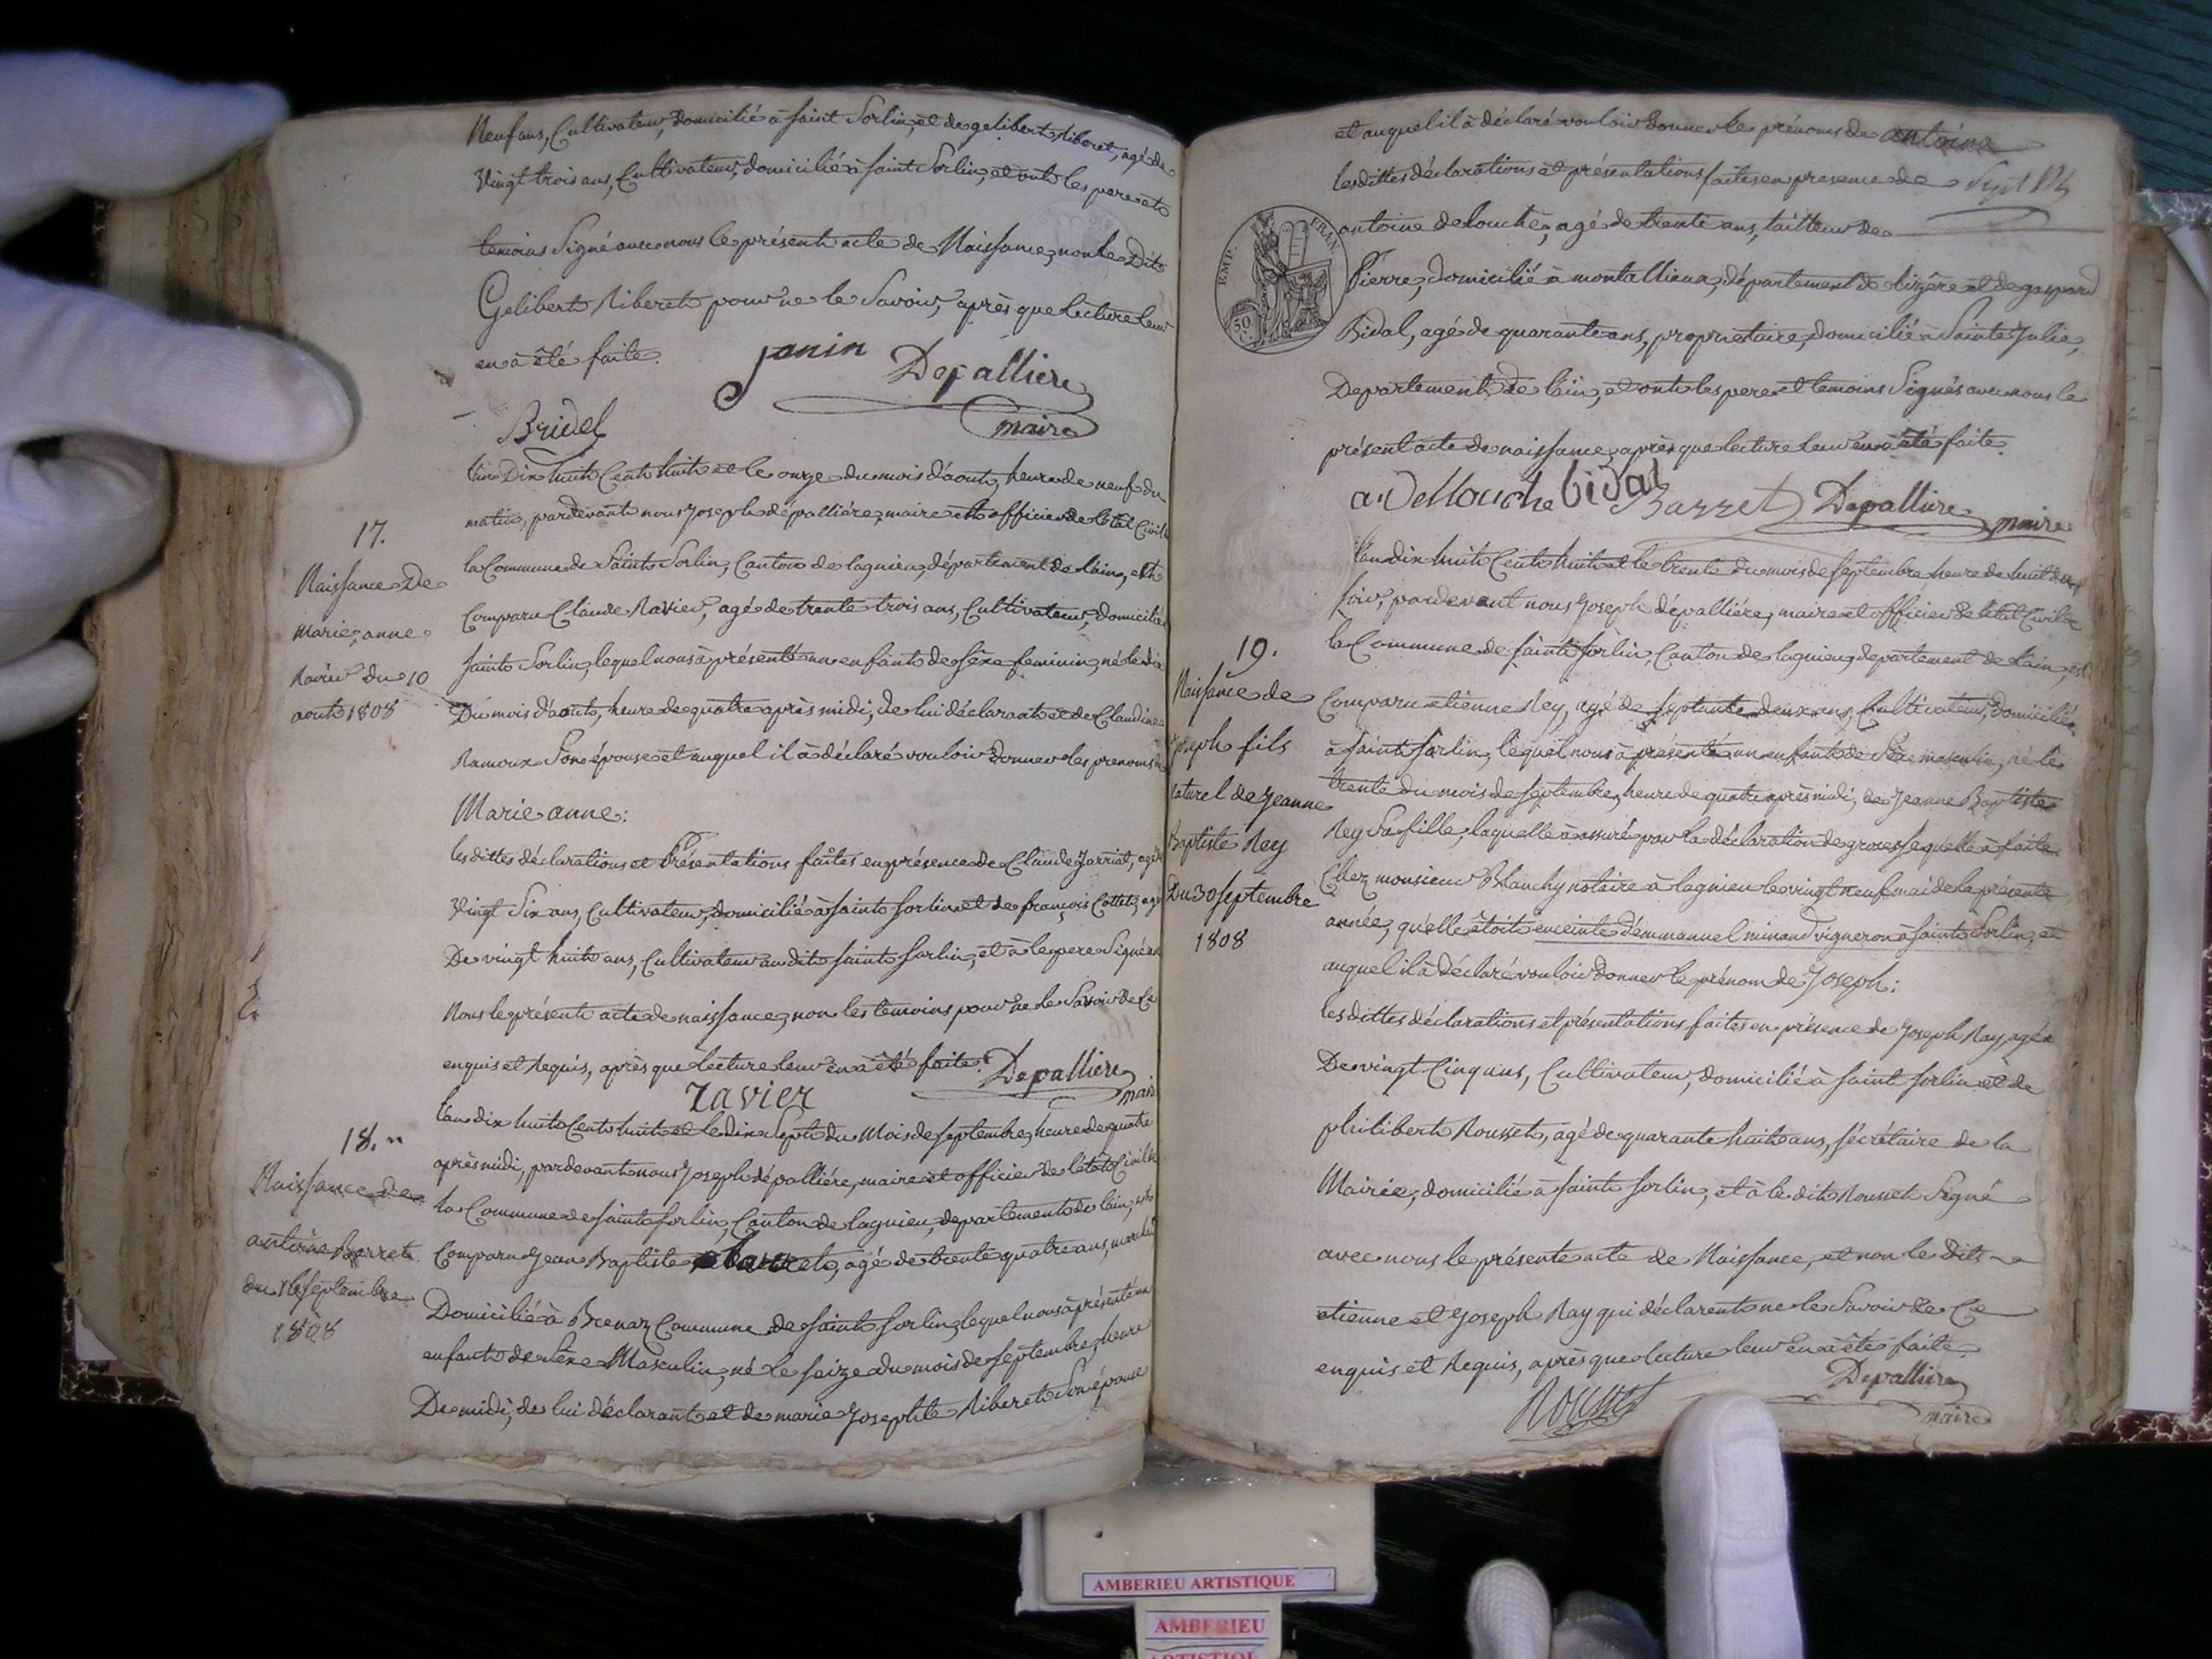 Neuf ans, Cultivateur, domicilié à saint Sorlin, et de gelibert Riberet, agé de
Vingt trois ans, Cultivateur, domicilié à saint Sorlin, et ont les pere et
temoins Signé avec nous le présent acte de Naissance, non le Dit
Gelibert Riberet pour ne le Savoir, après que lecture leur
en à été faite.
janin Depalliere
maire
Bridel
17.
Naissance De
marie anne
Ravier du 10
aout 1808
l'an Dix huit Cent huit et le onze du mois d'aout, heure de neuf du
matin, pardevant nous Joseph dépalliére, maire et officier de l'état Civil
la Commune de Saint Sorlin, Canton de lagnieu, département de l'ain, est
Comparu Claude Ravier, agé de trente trois ans, Cultivateur, domicilié
saint Sorlin, lequel nous à présenté un enfant de sèxe feminin, né le dix
Du mois d'aout, heure de quatre après midi, de lui déclarant et de Claudine
Ramoux Son épouse et auquel il à déclaré vouloir Donner les prenoms
Marie anne:
lesdittes déclarations et Présentations faites en présence de Claude Jarriet, agé
Vingt Six ans, Cultivateur, domicilié à saint Sorlin et de françois Cottet, agé
De vingt huit ans, Cultivateur au dit saint Sorlin, et à le pere Signé
Nous le présent acte de naissance, non les temoins pour ne le Savoir de Ce
enquis et Requis, après que lecture leur en à été faite. Depalliere
ravier maire
18.
Naissance de
antoine Barret
du 16 septembre
1808
l'an dix huit Cent huit et le dix Sept du Mois de septembre, heure de quatre
après midi, pardevant nous Joseph dépalliére, maire et officier de l'état Civil
la Commune de saint sorlin, Canton de lagnieu, departement de l'ain, est
Comparu Jean Baptiste barret, agé de trente quatre ans,
Domicilié à Brenaz Commune de saint sorlin, lequel nous à présenté un
enfant de Sèxe Masculin, né le seize du mois de septembre, heure
De midi, de lui déclarant et de marie Josephte Riberet Son épouse
et auquel il à déclaré vouloir donner le prénoms de antoine
lesdittes déclarations et présentations faites en presence de
antoine delouche, agé de trente ans, tailleur de
Pierre, domicilié à montallieux, département de l'izère et de gaspard
Bidal, agé de quarante ans, propriétaire, domicilié à Sainte Julie,
Departement de l'ain, et ont les pere et temoins Signés avec nous le
présent acte de naissance, après que lecture leur en à été faite.
a. Dellouche bidal Barret Depalliere maire
EMP. FRAN.
50
19.
Naissance de
Joseph fils
naturel de Jeanne
Baptiste Rey
Du 30 septembre
1808
l'an dix huit Cent huit et le trente du mois de septembre heure de huit du
soir, pardevant nous Joseph dépalliére, maire et officier de l'état Civil de
la Commune de saint sorlin, Canton de lagnieu, departement de l'ain, est
Comparu etienne Rey, agé de septante deux ans, Cultivateur, domicilié
à saint sorlin, lequel nous à présenté un enfant de Sèxe masculin, né le
trente du mois de septembre, heure de quatre après midi, de Jeanne Baptiste
Rey Sa fille, laquelle à assuré par la déclaration de grossesse qu'elle à faite
Chez monsieur Blanchy notaire à lagnieu le vingt neuf mai de la présente
année, qu'elle étoit enceinte d'emmanuel minand vigneron à saint Sorlin, et
auquel il à déclaré vouloir donner le prénom de Joseph:
lesdittes déclarations et présentations faites en présence de Joseph Ray, agé
De vingt Cinq ans, Cultivateur, domicilié à saint sorlin et de
philibert Rousset, agé de quarante huit ans, sécrétaire de la
Mairie, domicilié à saint sorlin, et à le dit Rousset Signé
avec nous le présent acte de Naissance, et non le Dit
etienne et Joseph Ray qui déclarent ne le Savoir de Ce
enquis et Requis, après que lecture leur en à été faite.
Rousset Depalliere
maire
AMBERIEU ARTISTIQUE
AMBERIEU
ARTISTIQUE